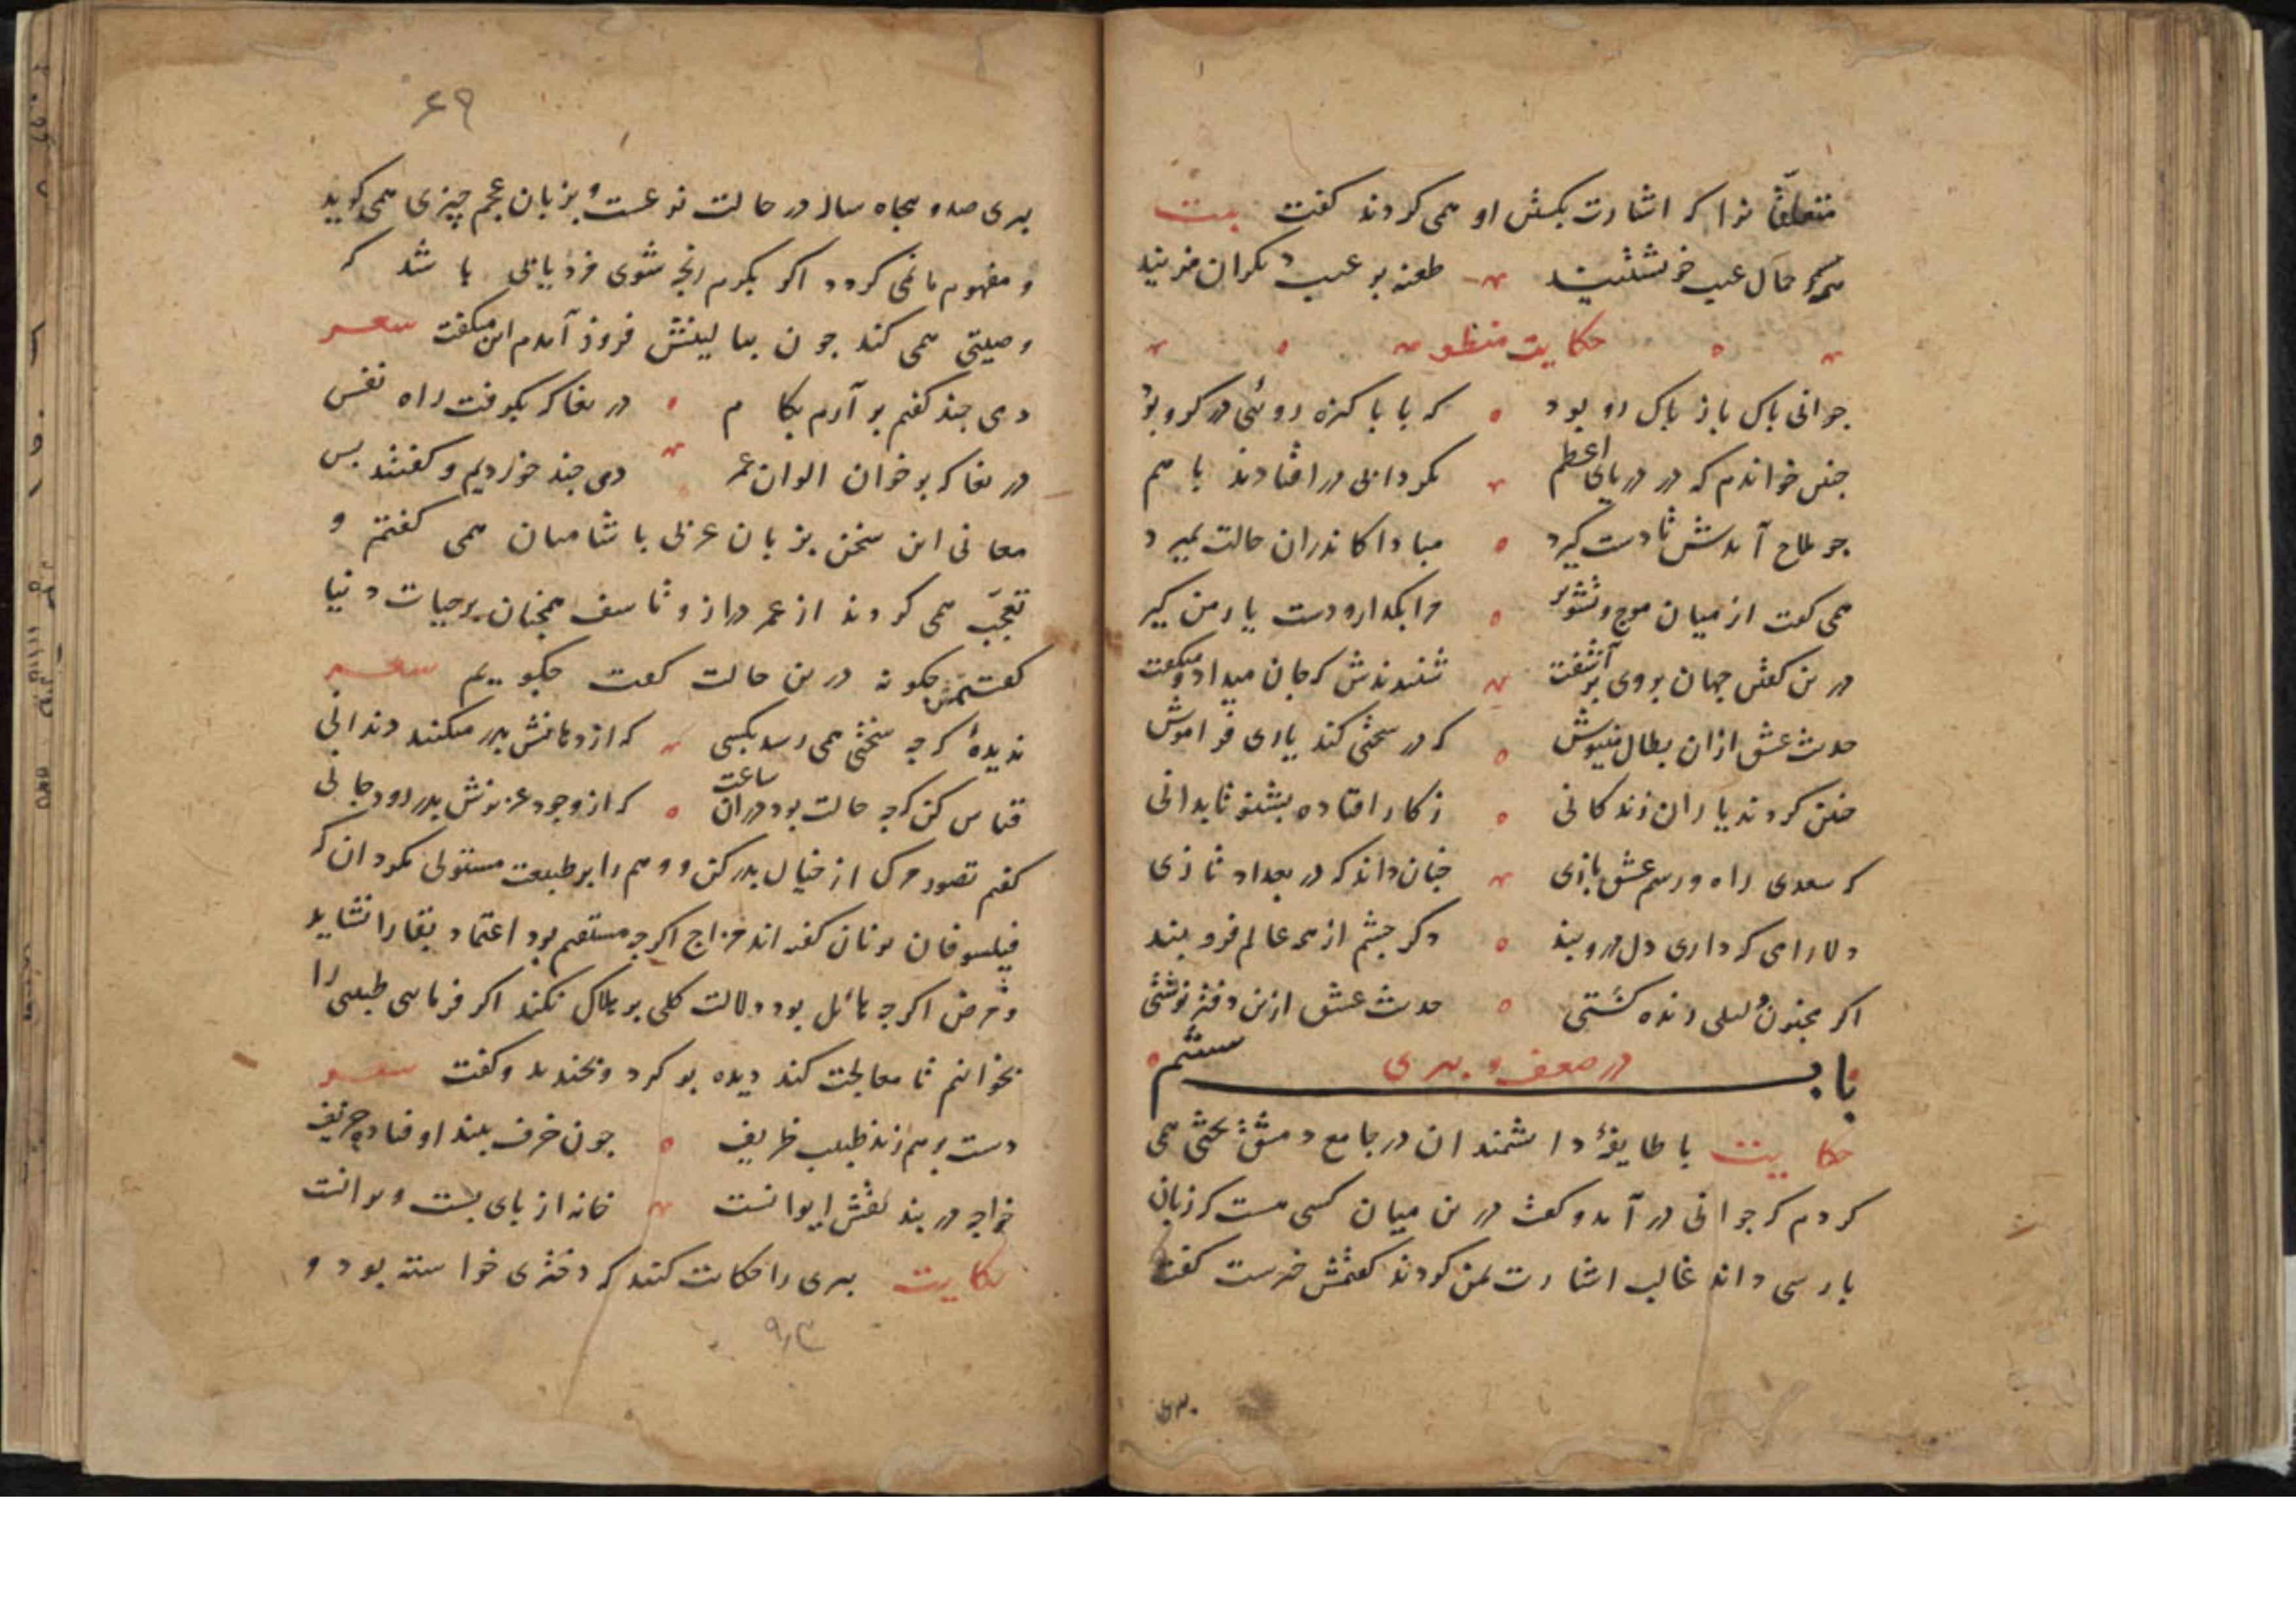 متعلقانرا که اشارت بکشتن او همی کردند کفت بیت
همه حمال عیب خویشتنیند طعنه بر عیب دیکران مزنید
حکایت منظومه
جوانی باک باز باک رو بود که با باکیزه روئی در کرو بود
جنین خواندم که در دریای اعظم بکردابی در افتادند با هم
جو ملاح آمدش تا دست کیرد مبادا کاندران حالت بمیرد
همی کفت از میان موج و تشویر مرا بکذار و دست یار من کیر
درین کفتن جهان بروی برآشفت شنیدندش که جان میداد و میکفت
حدیث عشق ازان بطال منیوش که در سختی کند یاری فراموش
جنین کردند یاران زندکانی ز کار افتاده بشنو تا بدانی
که سعدی راه و رسم عشق بازی جنان داند که در بغداد تازی
دلارامی که داری دل درو بند دکر جشم از همه عالم فرو بند
اکر مجنون و لیلی زنده کشتی حدیث عشق ازین دفتر نوشتی
باب ششم در ضعف و بیری
حکایت با طایفۀ دانشمندان در جامع دمشق بحثی همی
کردم که جوانی در آمد و کفت درین میان کسی هست که زبان
بارسی داند غالب اشارت بمن کردند کفتمش خیرست کفت
۶۹
بیری صد و بنجاه ساله در حالت نزعست و بزبان عجم چیزی همی کوید
و مفهوم ما نمی کردد اکر بکرم رنجه شوی مزد یابی باشد که
وصیتی همی کند جون ببالینش فروز آمدم این میکفت شعر
دمی جند کفتم بر آرم بکام دریغا که بکرفت راه نفس
دریغا که بر خوان الوان عمر دمی جند خوردیم و کفتند بس
معانی این سخن بزبان عربی با شامیان همی کفتم و
تعجّب همی کردند از عمر دراز و تاسف همجنان برحیات دنیا
کفتمش جکونه درین حالت کفت جکویم شعر
ندیدۀ که جه سختی همی رسد بکسی که از دهانش بدر میکنند دندانی
قیاس کن که جه حالت بود دران ساعت که از وجود عزیزش بدر رود جانی
کفتم تصور مرک از خیال بدر کن و وهم را بر طبیعت مستولی مکردان که
فیلسوفان یونان کفته اند مزاج اکرجه مستقیم بود اعتماد بقا را نشاید
و مرض اکرجه هائل بود دلالت کلی بر هلاک نکند اکر فرمایی طبیبی را
بخوانیم تا معالجت کند دیده بر کرد و بخندید و کفت شعر
دست بر هم زند طبیب ظریف جون خرف بیند اوفتاده حریف
خواجه در بند نقش ایوانست خانه از بای بست ویرانست
حکایت بیری را حکایت کنند که دختری خواسته بود و